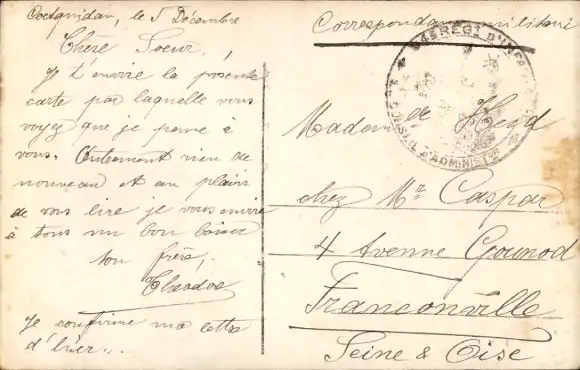 Coetquidan, le 5 Décembre
Chère Soeur,
Je t'envoie la présente
carte par laquelle vous
voyez que je pense à
vous. Autrement rien de
nouveau et au plaisir
de vous lire je vous envoie
à tous un bon baiser
ton frère,
Théodore
Je confirme ma lettre
d'hier.
Correspondance militaire
RÉGT D'INF
CONSEIL D'ADMINISTON
Madame de
chez Mr Caspar
4 Avenue Gounod
Franconville
Seine & Oise